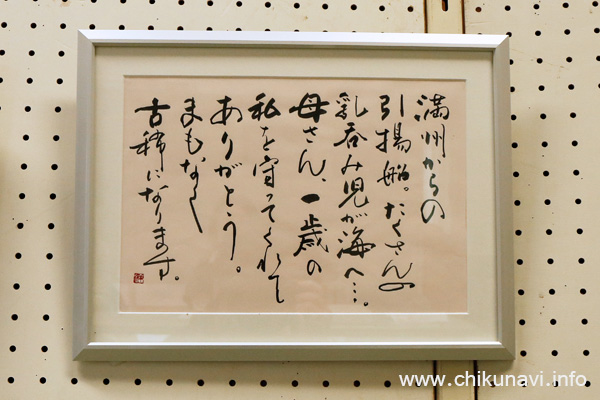 満州からの
引揚船。たくさんの
乳呑み児が海へ…。
母さん、一歳の
私を守ってくれて
ありがとう。
まもなく
古稀になります。
www.chikunavi.info